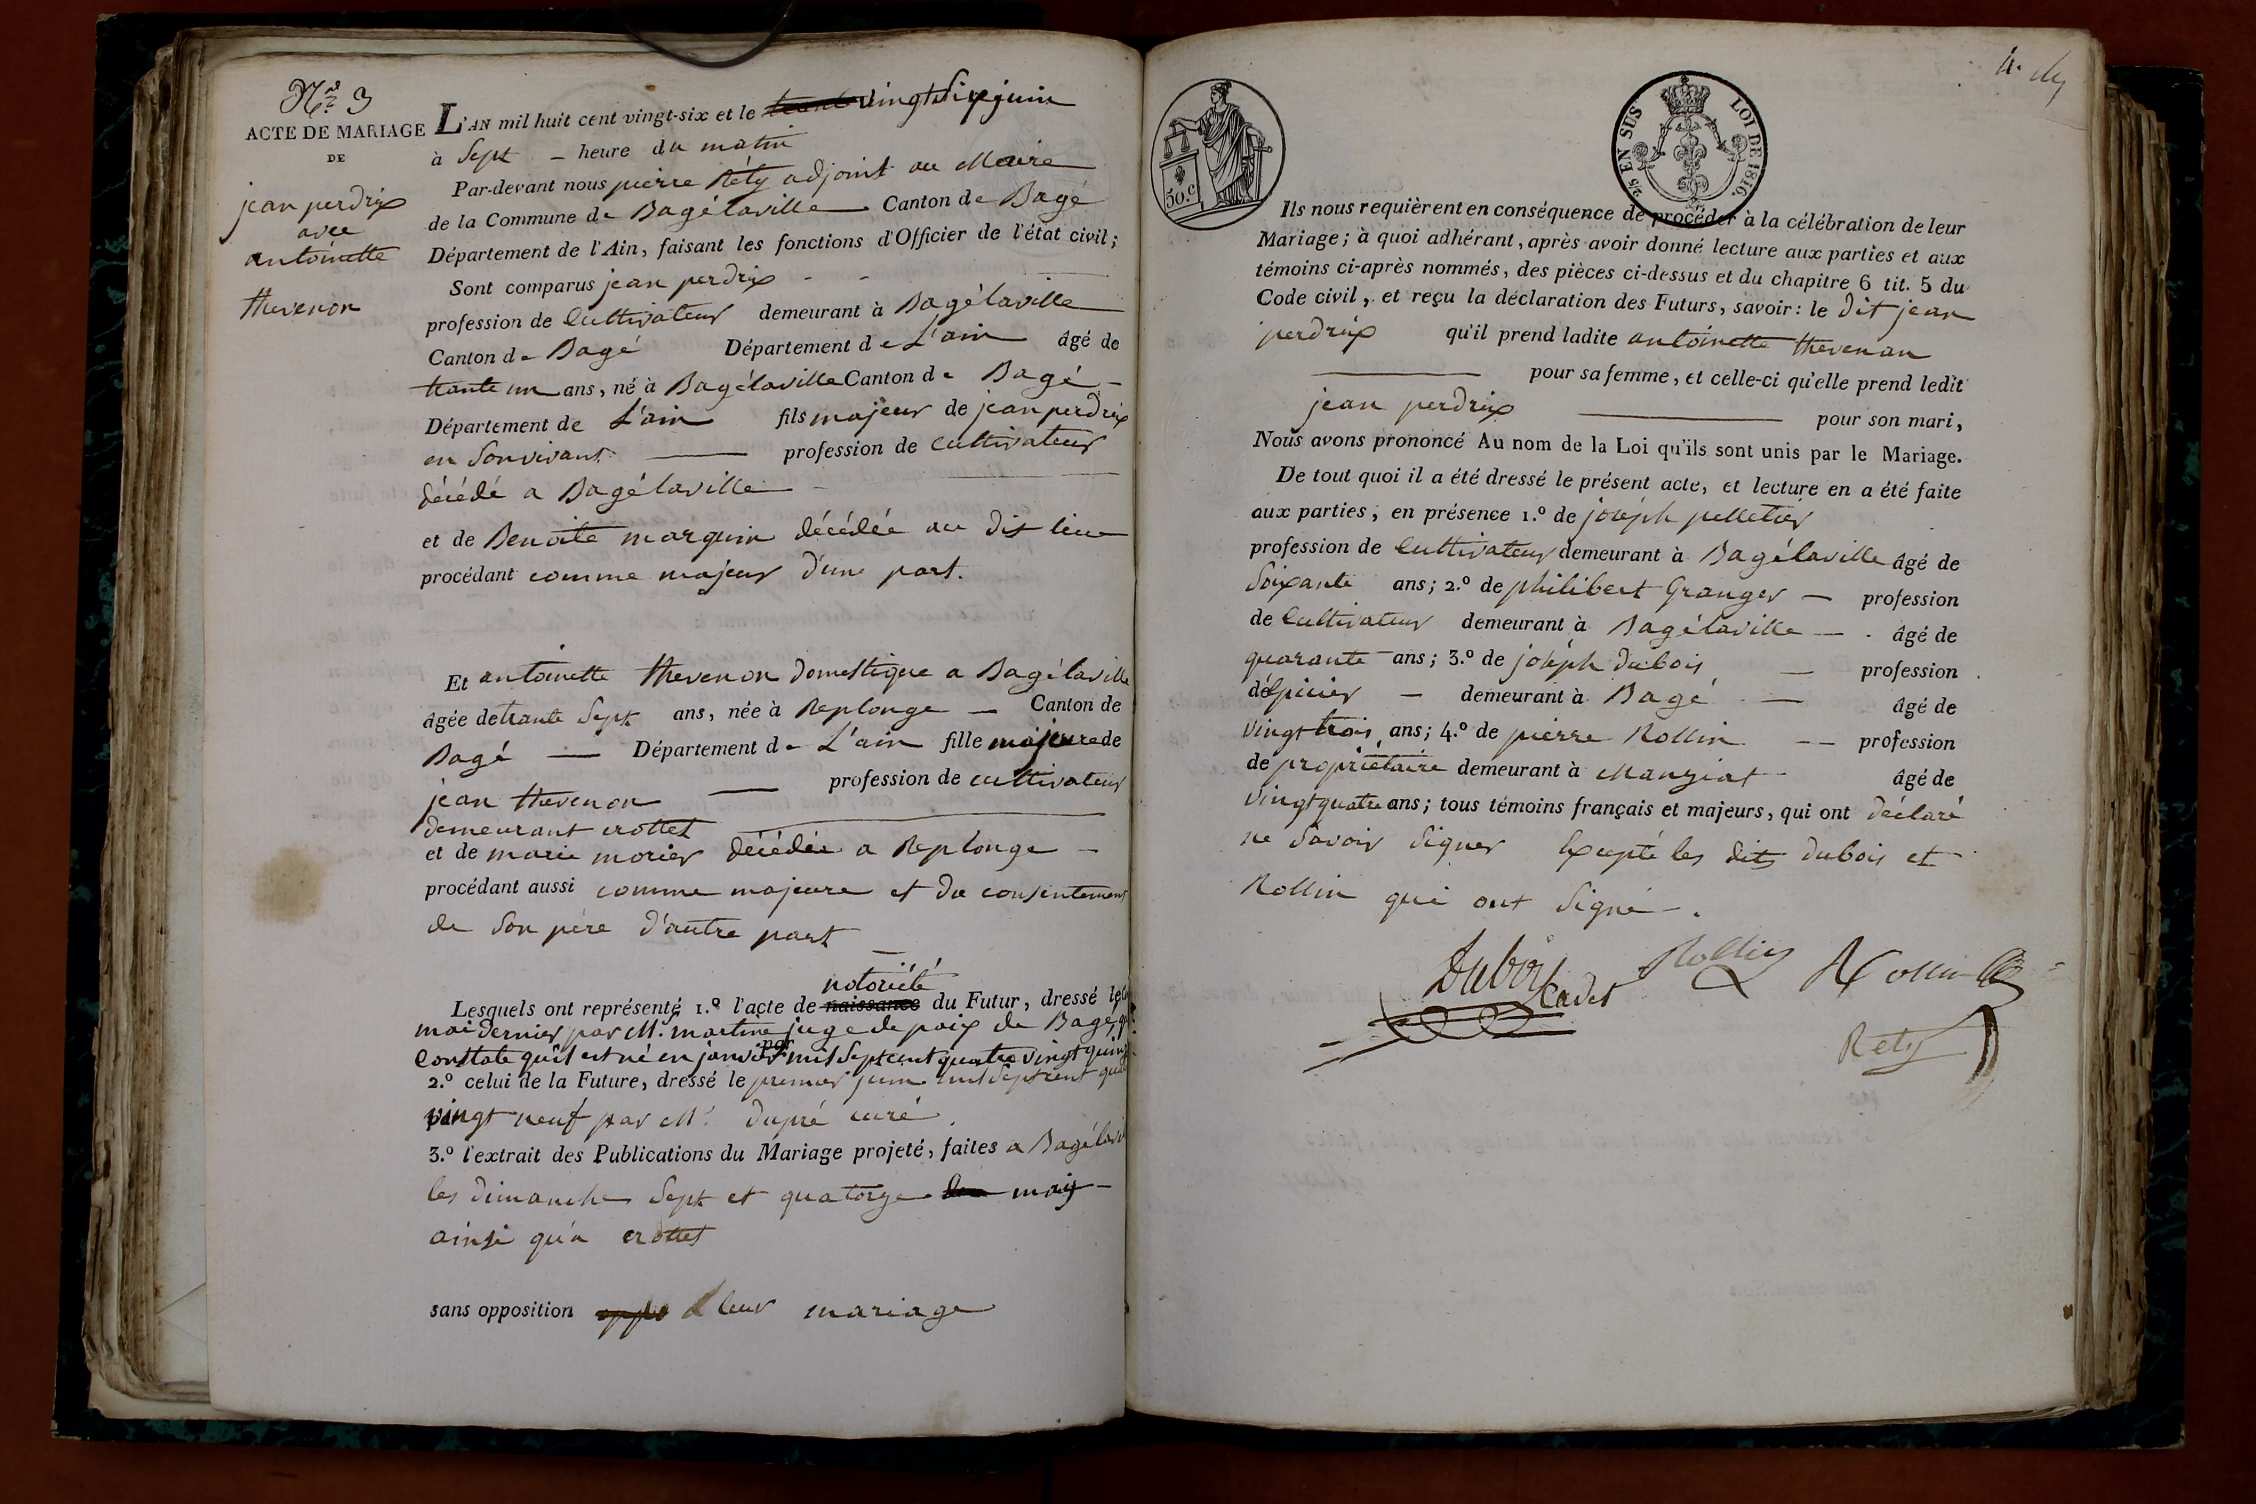 N.° 3
ACTE DE MARIAGE
DE
jean perdrix
avec
antoinette
thevenon
L'AN mil huit cent vingt-six et le vingt Six juin
à Sept - heure du matin
Par-devant nous pierre Réty adjoint au Maire
de la Commune de Bagélaville Canton de Bagé
Département de l'Ain, faisant les fonctions d'Officier de l'état civil;
Sont comparus jean perdrix - -
profession de Cultivateur demeurant à Bagélaville
Canton de Bagé Département de L'ain âgé de
trante un ans, né à Bagélaville Canton de Bagé -
Département de L'ain fils majeur de jean perdrix
en Sonvivant profession de cultivateur
décédé a Bagélaville -
et de Benoite marguin décédée au dit lieu
procédant comme majeur d'une part.
Et antoinette thevenon domestique a Bagélaville
âgée de trante Sept ans, née à Replonge - Canton de
Bagé - Département de L'ain fille majeure de
jean thevenon - profession de cultivateur
demeurant crottet
et de marie morier décédée a Replonge -
procédant aussi comme majeure et du consentement
de Son père d'autre part
notoriété
Lesquels ont représenté 1.° l'acte de naissance du Futur, dressé le
mai dernier par M. martine juge de paix de Bagé, q
Constate quil est né en janvier mil Septcent quatre vingt quinz
2.° celui de la Future, dressé le premier juin mil Septcent quat
vingt neuf par M.r dupré curé
3.° l'extrait des Publications du Mariage projeté, faites a Bagélavi
les dimanche Sept et quatorze may -
ainsi qu'a crottet
sans opposition a leur mariage
50.c
25 EN SUS LOI DE 1816.
Ils nous requièrent en conséquence de procéder à la célébration de leur
Mariage; à quoi adhérant, après avoir donné lecture aux parties et aux
témoins ci-après nommés, des pièces ci-dessus et du chapitre 6 tit. 5 du
Code civil, et reçu la déclaration des Futurs, savoir: le dit jean
perdrix qu'il prend ladite antoinette thevenon
pour sa femme, et celle-ci qu'elle prend ledit
jean perdrix pour son mari,
Nous avons prononcé Au nom de la Loi qu'ils sont unis par le Mariage.
De tout quoi il a été dressé le présent acte, et lecture en a été faite
aux parties, en présence 1.° de joséph pelletier
profession de Cultivateur demeurant à Bagélaville âgé de
Soixante ans; 2.° de philibert Granger - profession
de Cultivateur demeurant à Bagélaville - . âgé de
quarante ans; 3.° de joséph dubois - profession
dépicier - demeurant à Bagé - âgé de
vingt trois ans; 4.° de pierre Rollin - - profession
de propriétaire demeurant à Manziat - âgé de
vingtquatre ans; tous témoins français et majeurs, qui ont déclaré
ne Savoir Signer Exepté les dits dubois et
Rollin qui ont Signé - .
Dubois Cadet Rollin Rollin
Rety